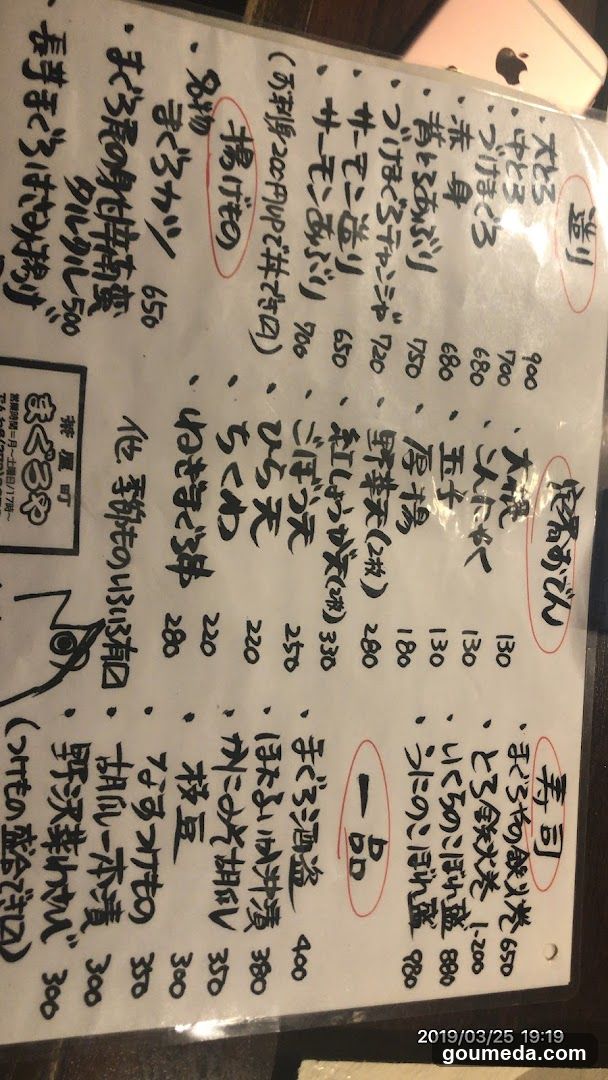 造り
・大とろ 900
・中とろ 700
・づけまぐろ 680
・赤身 680
・替とろあぶり 750
・づけまぐろチャンジャ 720
・サーモン造り 650
・サーモンあぶり 700
(お造り200円UPで丼できます)
揚げもの
・名物 まぐろカツ 650
・まぐろ屋の身付 タルタル 500
・長芋まぐろはさみ揚げ
定番おでん
・大根 130
・こんにゃく 130
・玉子 130
・厚揚 180
・野菜天(2枚) 280
・紅しょうが天(2枚) 330
・ごぼう天 250
・ひら天 220
・ちくわ 220
・ねぎまぐろ串 280
他 季節ものいろいろ有〼
寿司
・まぐろやの鉄火巻 650
・とろ鉄火巻 1-200
・いくらのこぼれ盛 880
・うにのこぼれ盛 980
一品
・まぐろ酒盗 400
・ほたるいか沖漬 380
・かにみそ胡瓜 350
・枝豆 300
・なすつけもの 350
・胡瓜一本漬 300
・野沢菜わさび 300
(つけもの盛合でき〼)
営業時間=月~土曜日/17時~
茶屋町
まぐろや
2019/03/25 19:19
goumeda.com